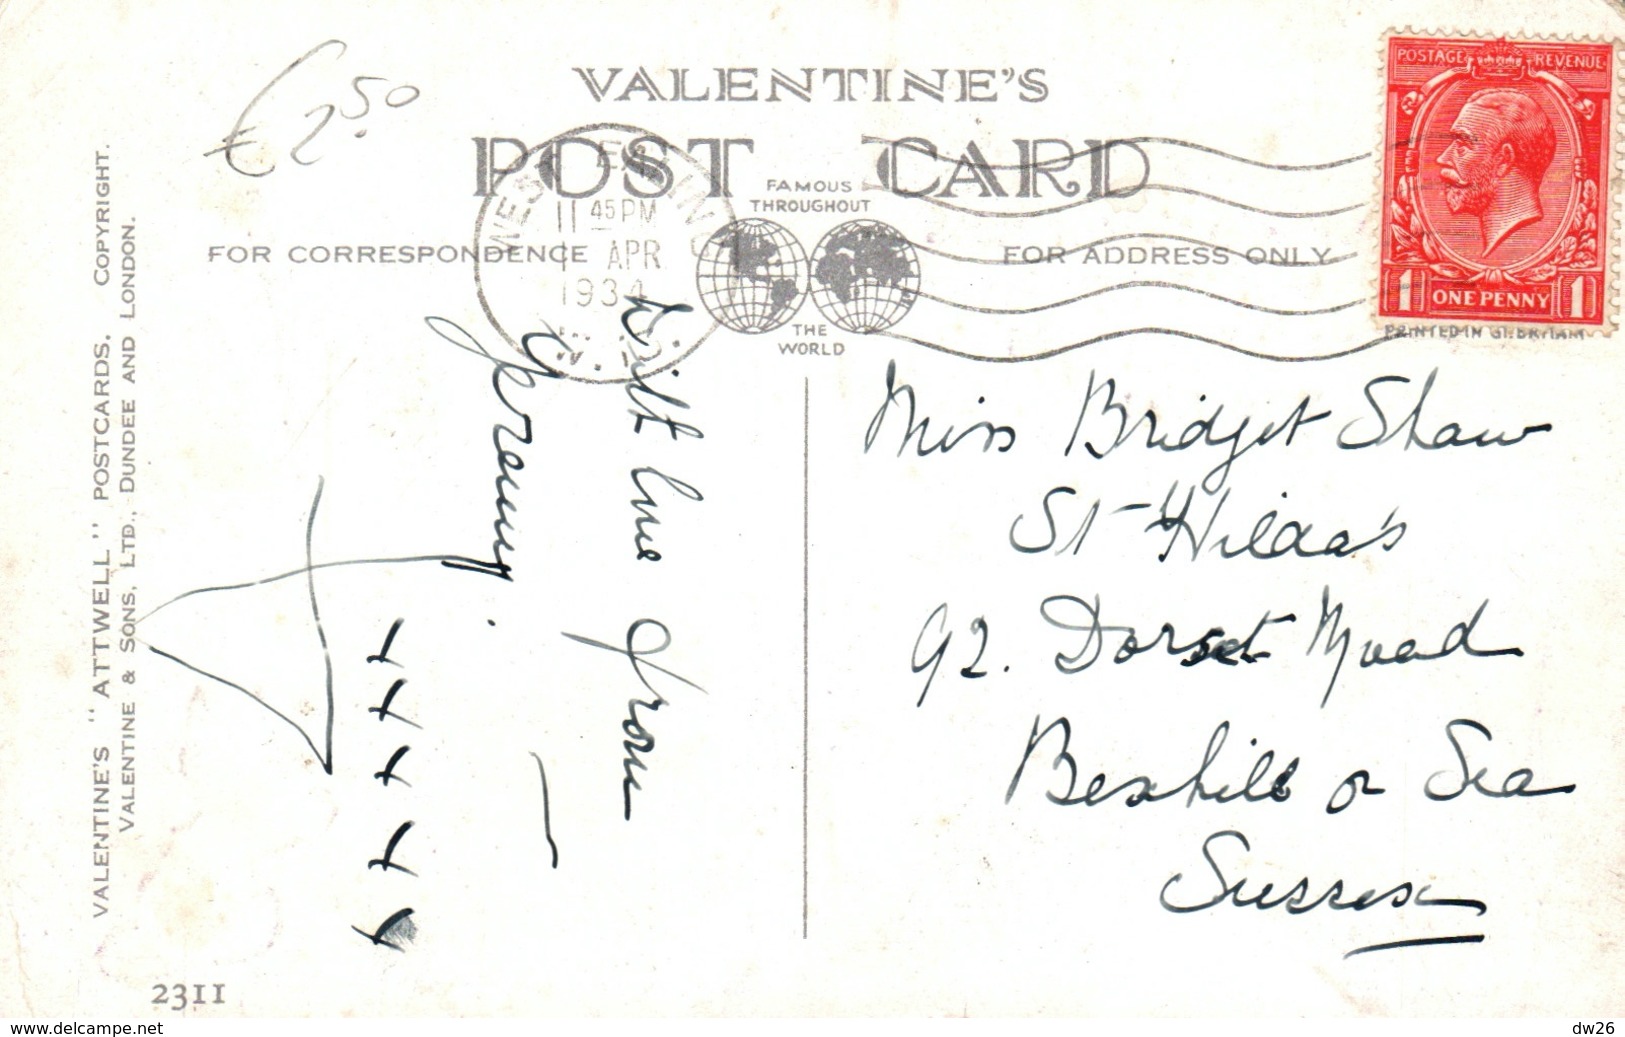 €2.50
VALENTINE'S
POST CARD
FAMOUS
THROUGHOUT
THE
WORLD
FOR CORRESPONDENCE
FOR ADDRESS ONLY
WEST EALING
11 45 PM
1 APR
1934
POSTAGE REVENUE
1 ONE PENNY 1
PRINTED IN GT. BRITAIN
With love from
Granny.
x x x x x
Miss Bridget Shaw
St Hilda's
92. Dorset Road
Bexhill on Sea
Sussex
VALENTINE'S "ATTWELL" POSTCARDS. COPYRIGHT.
VALENTINE & SONS, LTD., DUNDEE AND LONDON.
2311
www.delcampe.net
dw26